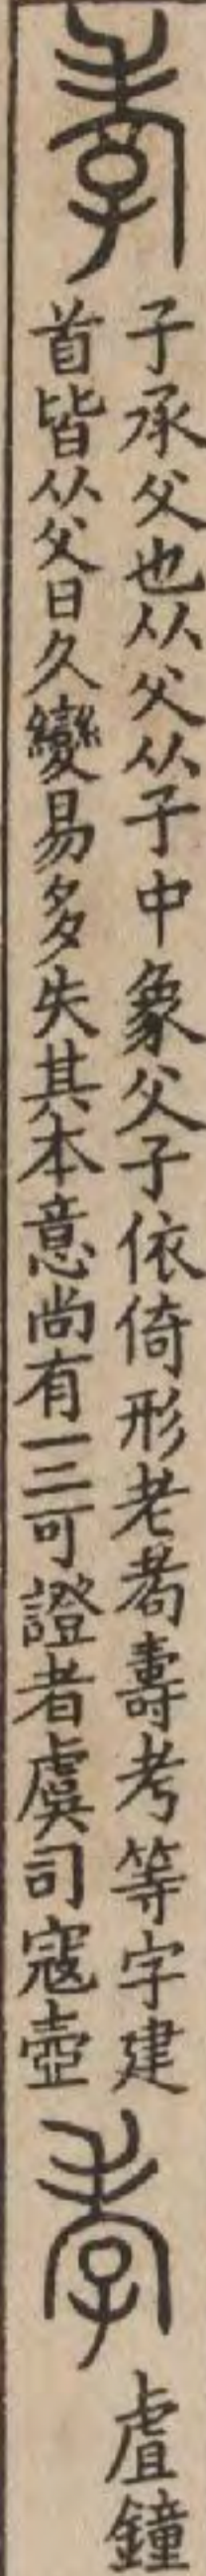 孝
子承父也从父从子中象父子依倚形老耇壽考等字建
首皆从父日久變易多失其本意尚有一二可證者虞司寇壺
孝
虘鐘